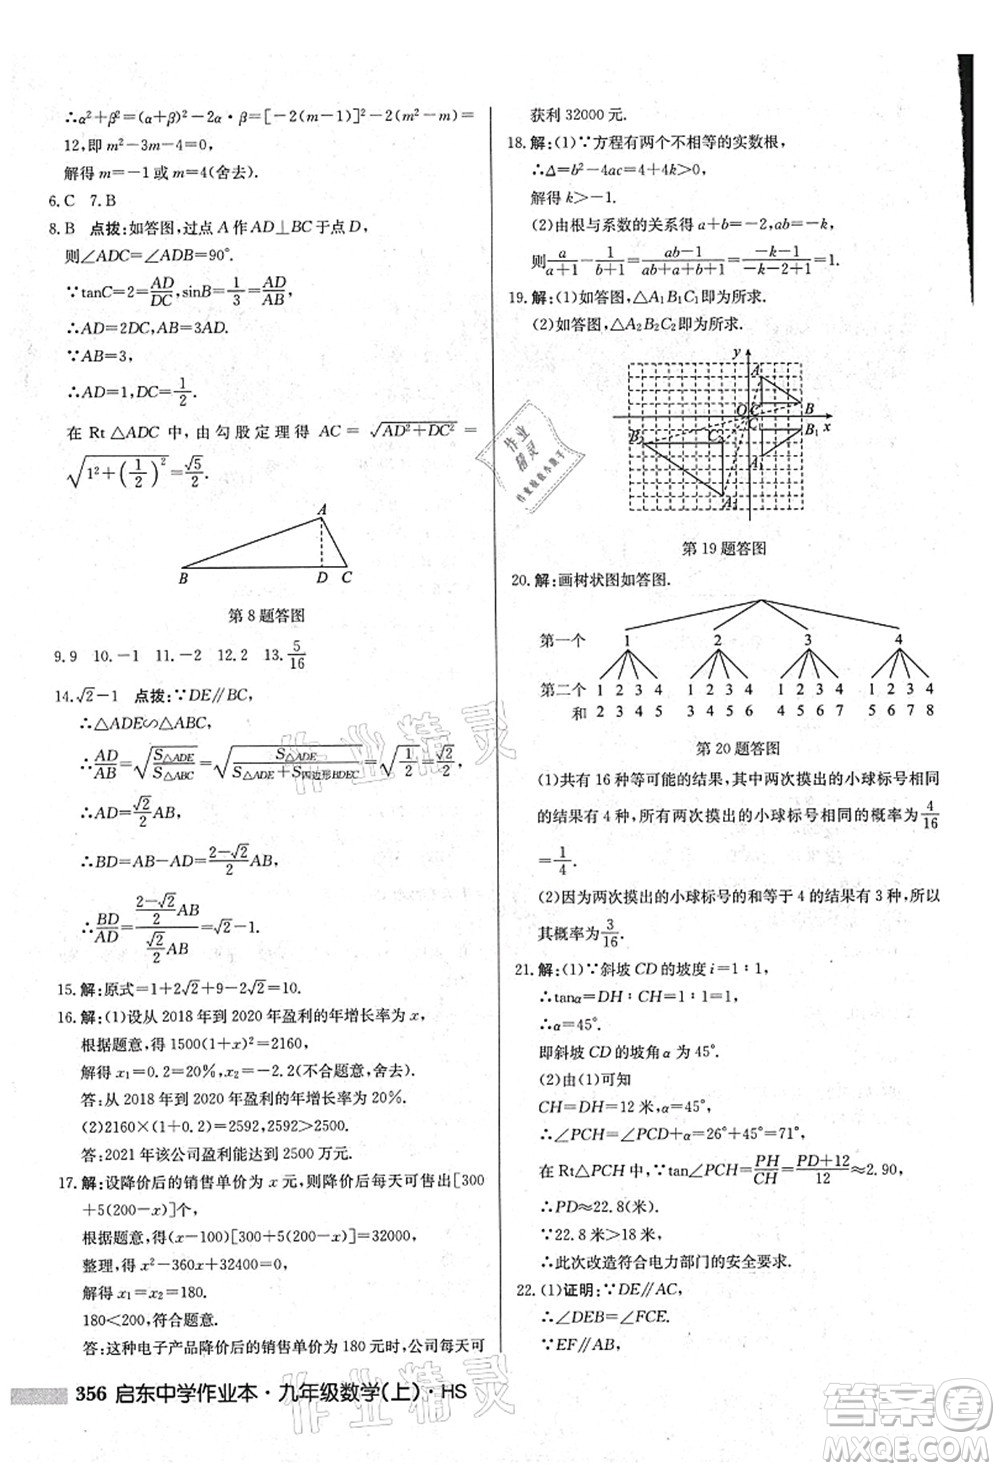 ∴α²+β²=(α+β)²-2α·β=[-2(m-1)]²-2(m²-m)=
12,即 m²-3m-4=0,
解得 m=-1 或 m=4(舍去).
6.C 7.B
8.B 点拨:如答图,过点 A 作 AD⊥BC 于点 D,
则∠ADC=∠ADB=90°.
∵tanC=2=AD/DC,sinB=1/3=AD/AB,
∴AD=2DC,AB=3AD.
∵AB=3,
∴AD=1,DC=1/2.
在 Rt△ADC 中,由勾股定理得 AC=√(AD²+DC²)=
√(1²+(1/2)²)=√5/2.
A
B D C
第 8 题答图
9.9 10.-1 11.-2 12.2 13.5/16
14.√2-1 点拨:∵DE∥BC,
∴△ADE∽△ABC,
∴AD/AB=√(S△ADE/S△ABC)=√(S△ADE/(S△ADE+S四边形BDEC))=√(1/2)=√2/2,
∴AD=√2/2AB,
∴BD=AB-AD=(2-√2)/2AB,
∴BD/AD=((2-√2)/2AB)/(√2/2AB)=√2-1.
15.解:原式=1+2√2+9-2√2=10.
16.解:(1)设从 2018 年到 2020 年盈利的年增长率为 x,
根据题意,得 1500(1+x)²=2160,
解得 x₁=0.2=20%,x₂=-2.2(不合题意,舍去).
答:从 2018 年到 2020 年盈利的年增长率为 20%.
(2)2160×(1+0.2)=2592,2592>2500.
答:2021 年该公司盈利能达到 2500 万元.
17.解:设降价后的销售单价为 x 元,则降价后每天可售出[300
+5(200-x)]个,
根据题意,得(x-100)[300+5(200-x)]=32000,
整理,得 x²-360x+32400=0,
解得 x₁=x₂=180.
180<200,符合题意.
答:这种电子产品降价后的销售单价为 180 元时,公司每天可
获利 32000 元.
18.解:(1)∵方程有两个不相等的实数根,
∴Δ=b²-4ac=4+4k>0,
解得 k>-1.
(2)由根与系数的关系得 a+b=-2,ab=-k,
则a/(a+1)-1/(b+1)=(ab-1)/(ab+a+b+1)=(-k-1)/(-k-2+1)=1.
19.解:(1)如答图,△A₁B₁C₁即为所求.
(2)如答图,△A₂B₂C₂即为所求.
y
A
O C B
B₂ C₂ C₁ B₁ x
A₁
A₂
第 19 题答图
20.解:画树状图如答图.
第一个 1 2 3 4
第二个 1 2 3 4 1 2 3 4 1 2 3 4 1 2 3 4
和 2 3 4 5 3 4 5 6 4 5 6 7 5 6 7 8
第 20 题答图
(1)共有 16 种等可能的结果,其中两次摸出的小球标号相同
的结果有 4 种,所有两次摸出的小球标号相同的概率为4/16
=1/4.
(2)因为两次摸出的小球标号的和等于 4 的结果有 3 种,所以
其概率为3/16.
21.解:(1)∵斜坡 CD 的坡度 i=1∶1,
∴tanα=DH∶CH=1∶1=1,
∴α=45°.
即斜坡 CD 的坡角 α 为 45°.
(2)由(1)可知
CH=DH=12 米,α=45°,
∴∠PCH=∠PCD+α=26°+45°=71°,
在 Rt△PCH 中,∵tan∠PCH=PH/CH=(PD+12)/12≈2.90,
∴PD≈22.8(米).
∵22.8 米>18 米,
∴此次改造符合电力部门的安全要求.
22.(1)证明:∵DE∥AC,
∴∠DEB=∠FCE.
∵EF∥AB,
356 启东中学作业本·九年级数学(上)·HS
作业精灵
作业精灵
作业精灵
答案圈
MXQE.COM